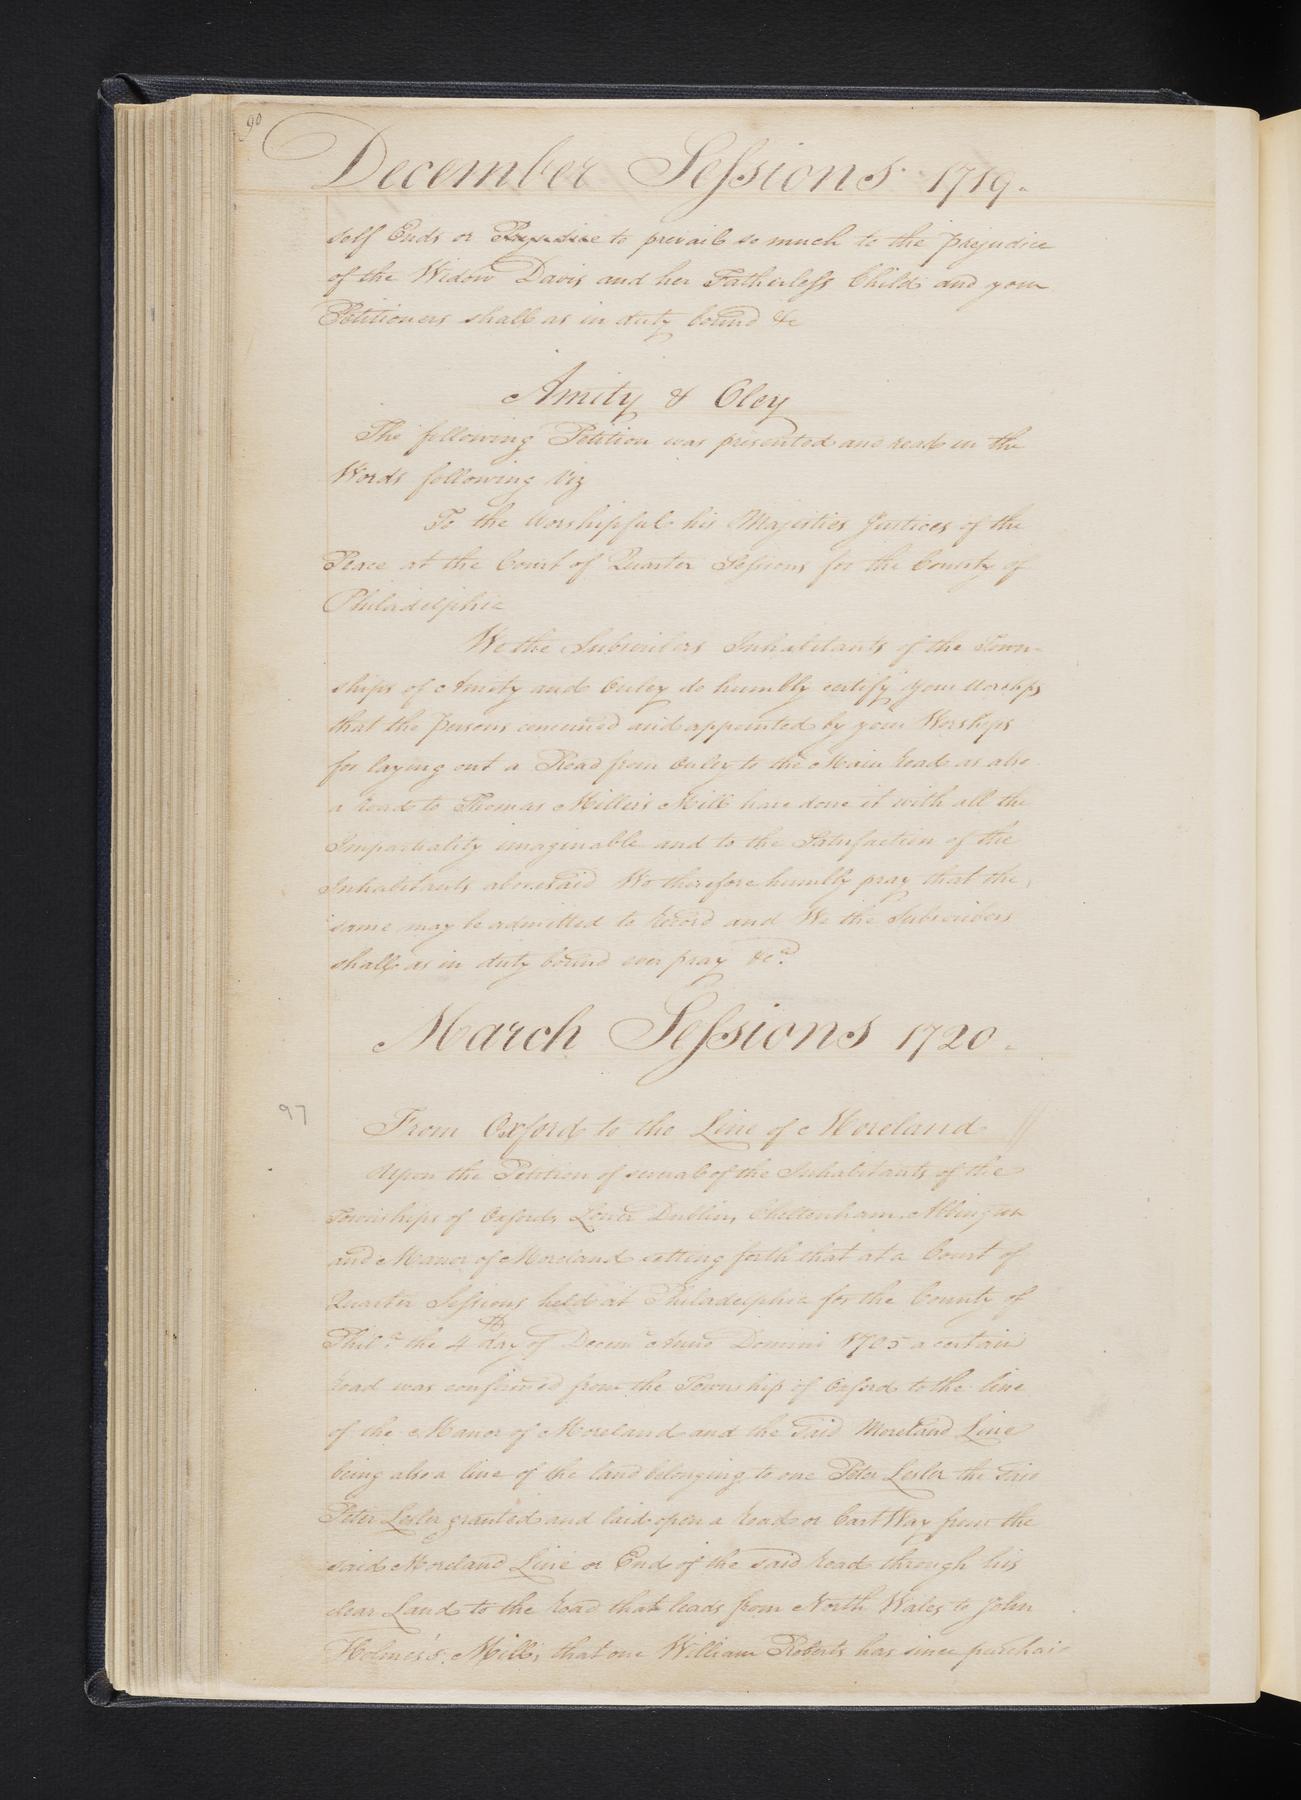 90
December Sessions 1719.
self Ends or Prejudice to prevail so much to the prejudice
of the Widow Davis and her Fatherless Child and your
Petitioners shall as in duty bound &c
Amity & Oley
The following Petition was presented and read in the
Words following Viz
To the Worshipful his Majesties Justices of the
Peace at the Court of Quarter Sessions for the County of
Philadelphia
We the Subscribers Inhabitants of the Town-
ships of Amity and Ouley do humbly certify your Worships
that the persons concerned and appointed by your Worships
for laying out a Road from Ouley to the Main Road as also
a Road to Thomas Miller's Mill have done it with all the
Impartiality imaginable and to the Satisfaction of the
Inhabitants abovesaid We therefore humbly pray that the
same may be admitted to Record and We the Subscribers
shall as in duty bound ever pray &ca.
March Sessions 1720.
97
From Oxford to the Line of Moreland
Upon the Petition of several of the Inhabitants of the
Townships of Oxford, Lower Dublin, Cheltenham, Abington
and Manor of Moreland setting forth that at a Court of
Quarter Sessions held at Philadelphia for the County of
Phila. the 4th day of Decemr Anno Domini 1705 a certain
road was confirmed from the Township of Oxford to the line
of the Manor of Moreland and the said Moreland Line
being also a line of the land belonging to one Peter Lesler the said
Peter Lesler granted and laid open a Road or Cart Way from the
said Moreland Line or End of the said Road through his
clear Land to the Road that leads from North Wales to John
Holmes's Mill, that one William Roberts has since purchas